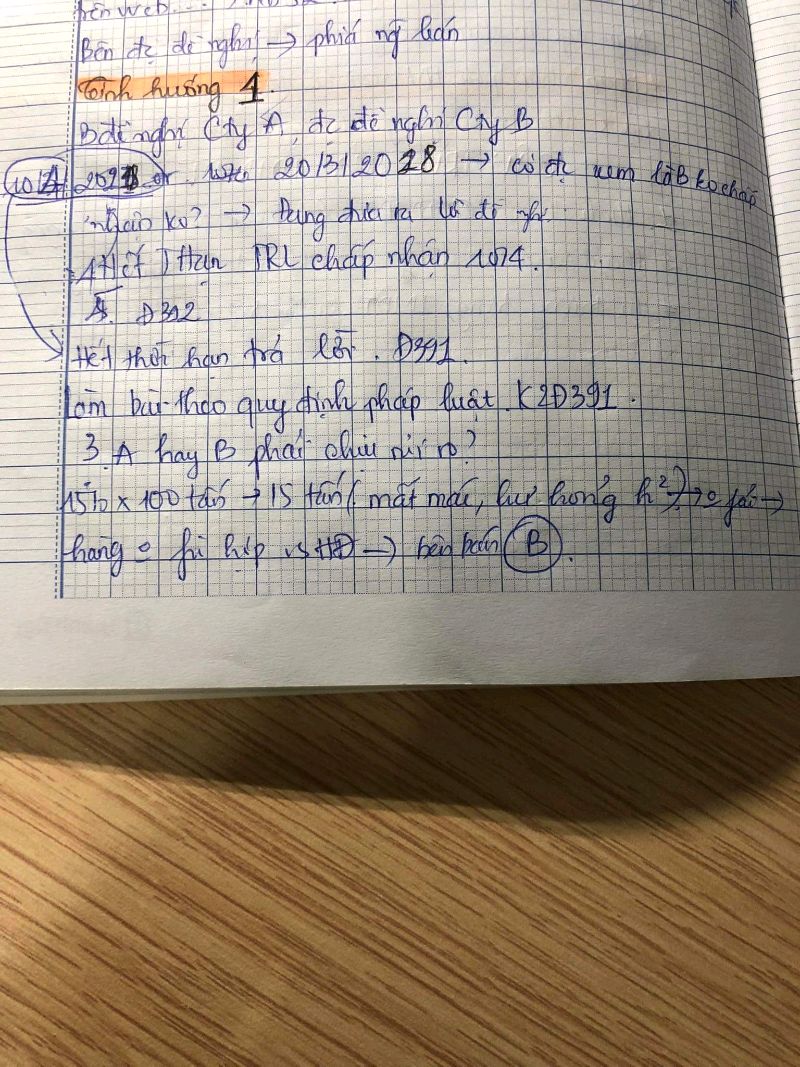 trên web...
Bên đc đề nghị → phía ng bán
Tình huống 1.
B đề nghị Cty A, đc đề nghị Cty B
10/4/ 20/3/2018 → có đc xem là B ko chấp
nhận ko? → đưa ra lời đề nghị
Hết T Hạn TRL chấp nhận 10/4.
Đ392
Hết thời hạn trả lời. Đ391.
làm bài theo quy định pháp luật K2Đ391.
3. A hay B phải chịu rủi ro?
15% x 100 tấn → 15 tấn (mất mát, hư hỏng h²) →
hàng 0 phù hợp vs HĐ → bên bán B.